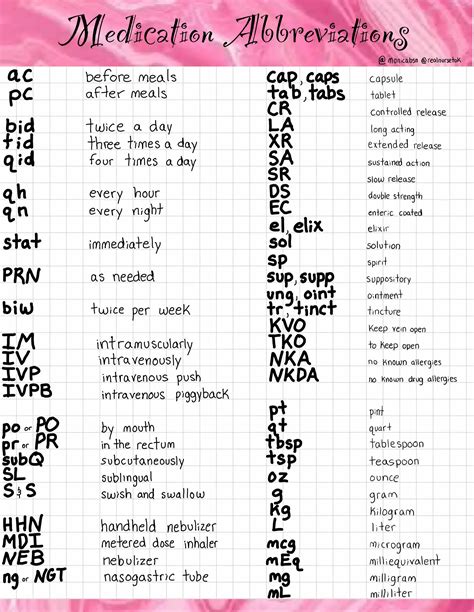 Medication Abbreviations
@monicabsn @realnursetok
ac before meals
pc after meals
bid twice a day
tid three times a day
qid four times a day
qh every hour
qn every night
stat immediately
PRN as needed
biw twice per week
IM intramuscularly
IV intravenously
IVP intravenous push
IVPB intravenous piggyback
po or PO by mouth
pr or PR in the rectum
subQ subcutaneously
SL sublingual
S&S swish and swallow
HHN handheld nebulizer
MDI metered dose inhaler
NEB nebulizer
ng or NGT nasogastric tube
cap, caps capsule
tab, tabs tablet
CR controlled release
LA long acting
XR extended release
SA sustained action
SR slow release
DS double strength
EC enteric coated
el, elix elixir
sol solution
sp spirit
sup, supp suppository
ung, oint ointment
tr, tinct tincture
KVO Keep vein open
TKO to Keep open
NKA no Known allergies
NKDA no Known drug allergies
pt pint
qt quart
tbsp tablespoon
tsp teaspoon
oz ounce
g gram
Kg Kilogram
L liter
mcg microgram
mEq milliequivalent
mg milligram
mL milliliter